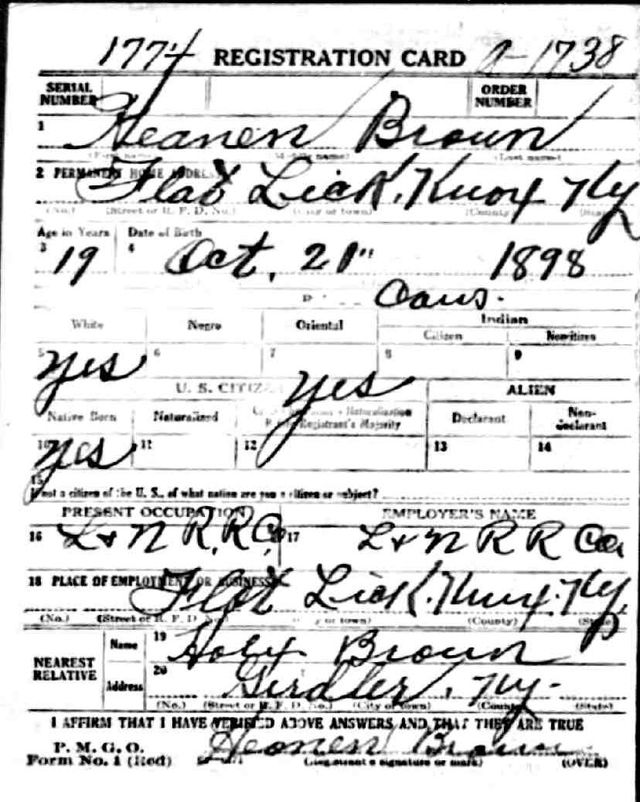 1774 REGISTRATION CARD A-1738
SERIAL NUMBER ORDER NUMBER
1 Heanen Brown
(First name) (Middle name) (Last name)
2 PERMANENT HOME ADDRESS Flat Lick, Knox Ky
(No.) (Street or R. F. D. No.) (City or town) (County) (State)
Age in Years Date of Birth
3 19 4 Oct, 21" 1898
Caus.
White Negro Oriental Indian
Citizen Noncitizen
5 yes 6 7 8 9
U. S. CITIZEN yes ALIEN
Native Born Naturalized Citizen by Father's Naturalization Before Registrant's Majority Declarant Non-declarant
10 yes 11 12 13 14
15 If not a citizen of the U. S., of what nation are you a citizen or subject?
PRESENT OCCUPATION EMPLOYER'S NAME
16 L & N R. R. Co 17 L & N R R Co
18 PLACE OF EMPLOYMENT OR BUSINESS Flat Lick. Knox. Ky,
(No.) (Street or R. F. D. No.) (City or town) (County) (State)
NEAREST RELATIVE Name 19 Brown
Address 20 Girdler, Ky-
(No.) (Street or R. F. D. No.) (City or town) (County) (State)
I AFFIRM THAT I HAVE VERIFIED ABOVE ANSWERS AND THAT THEY ARE TRUE
P. M. G. O.
Form No. 1 (Red) Heanen Brown
(Registrant's signature or mark) (OVER)